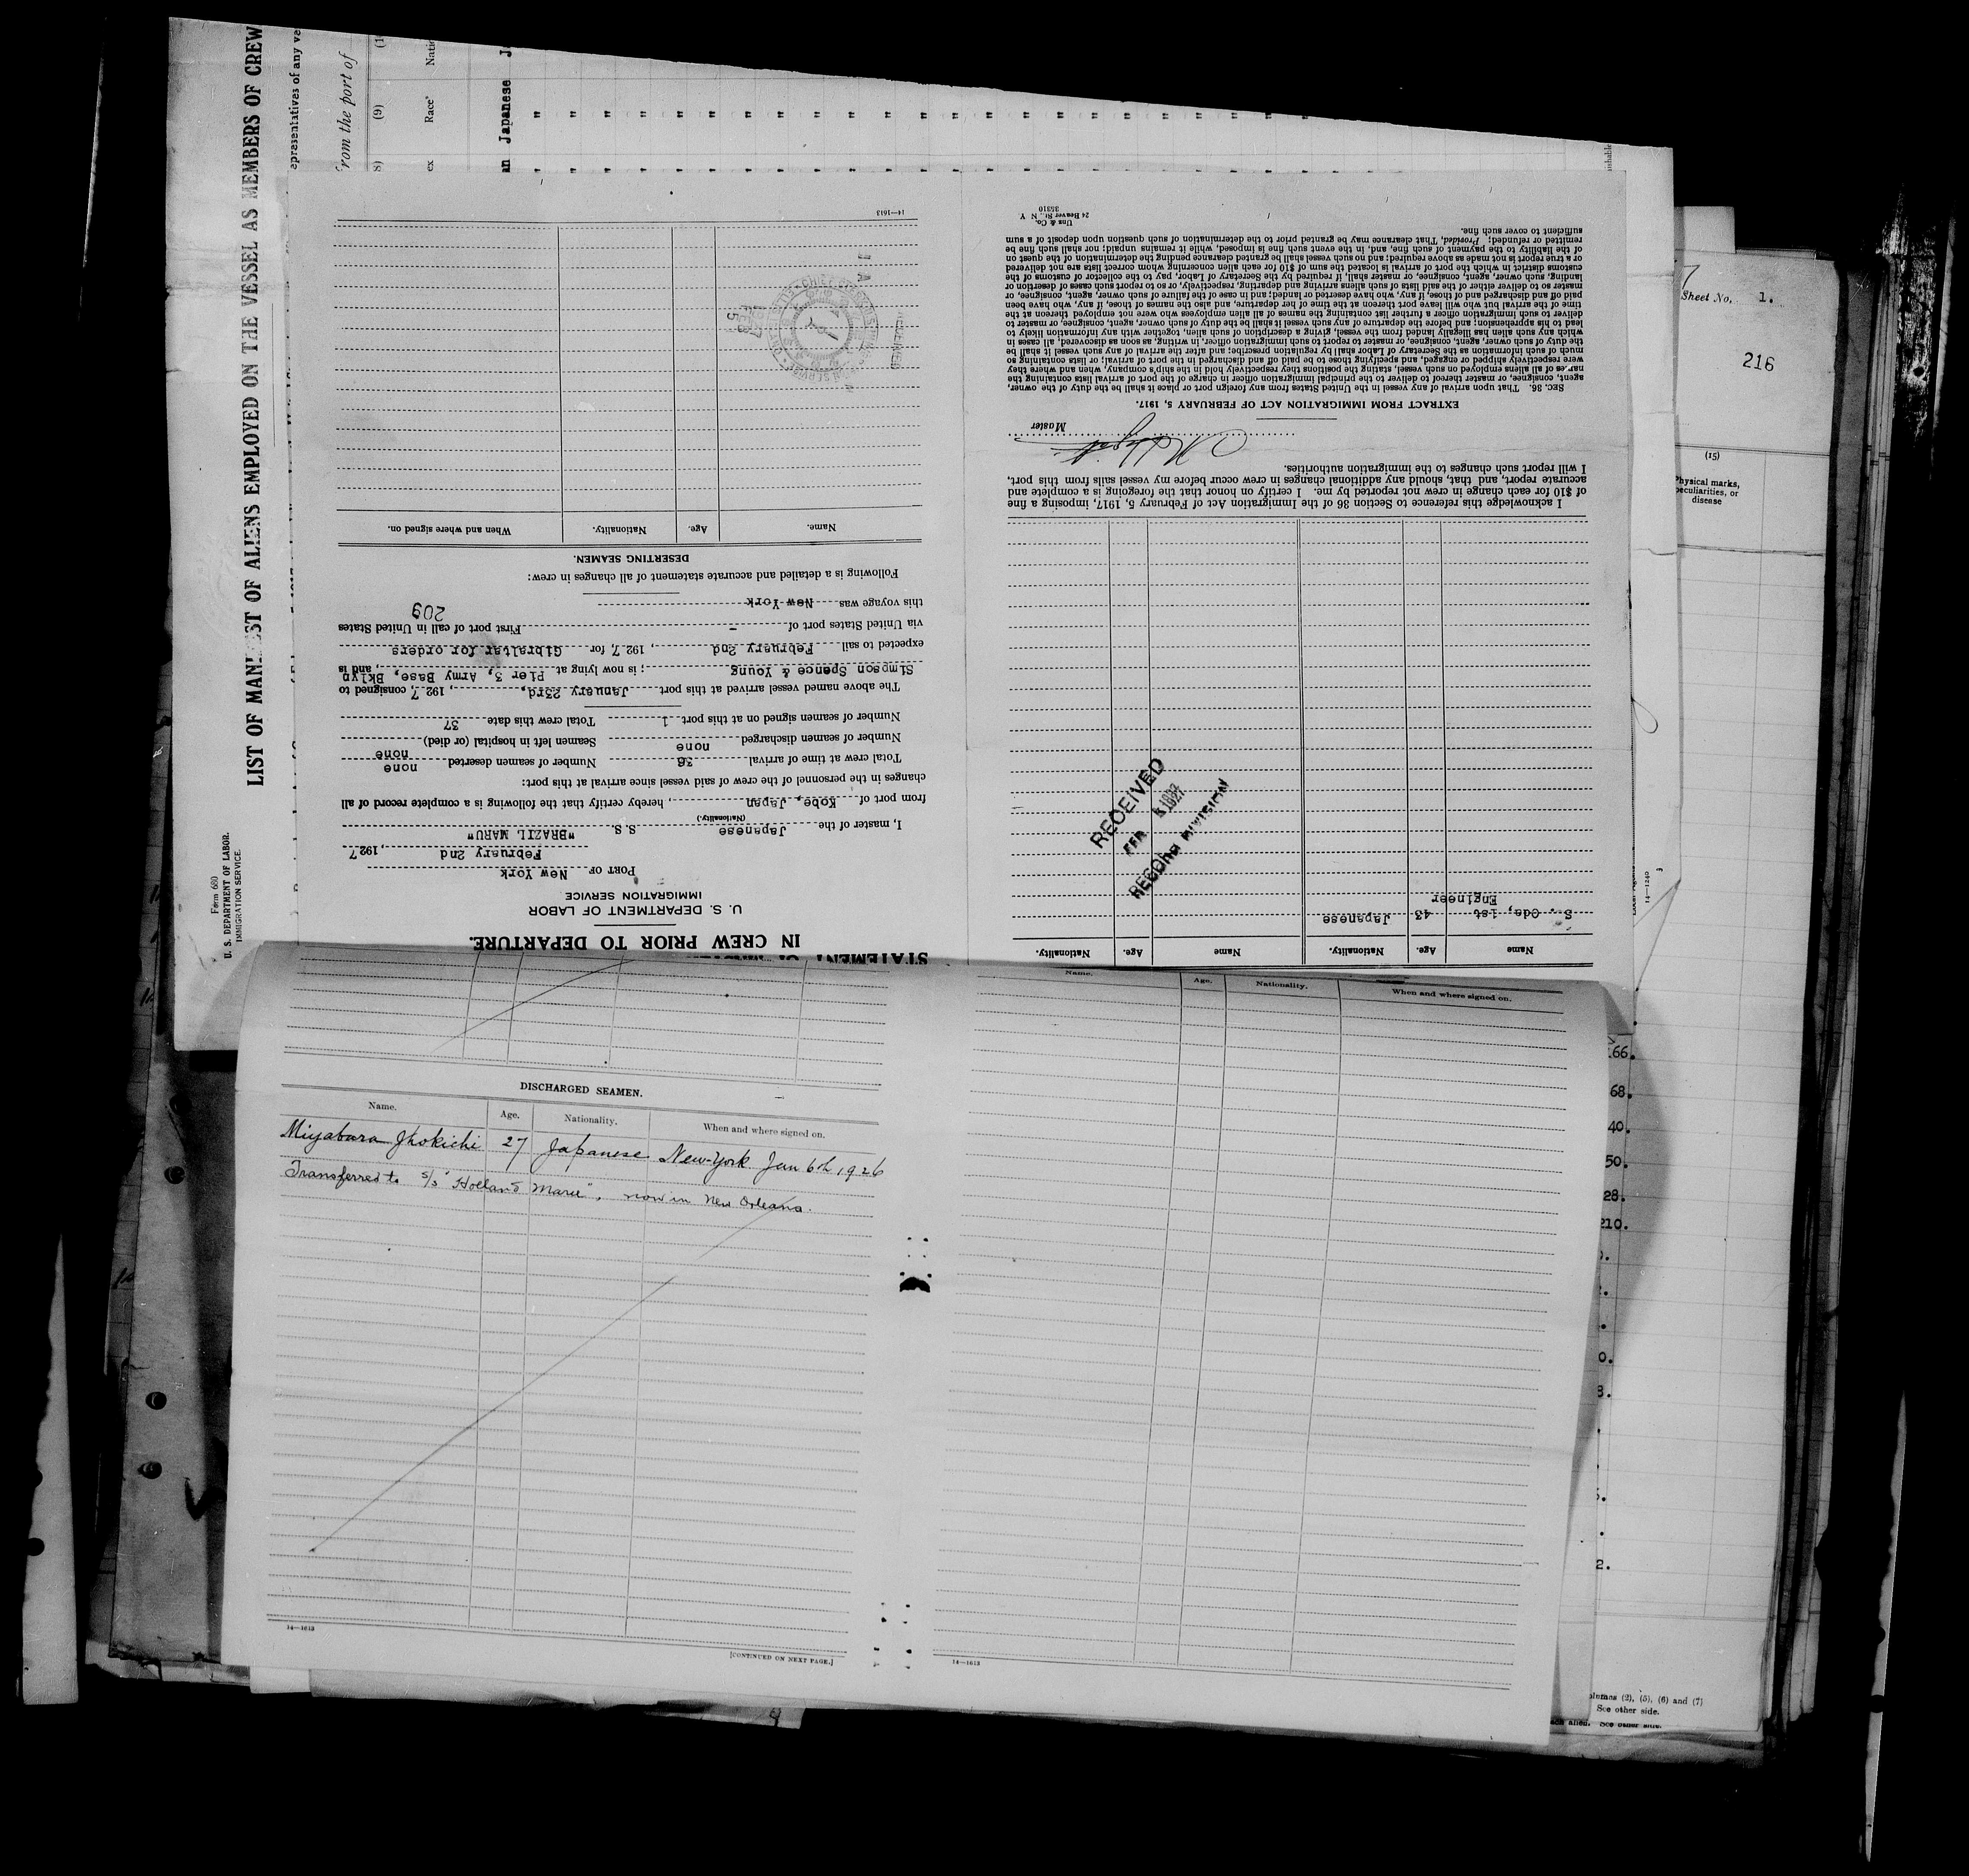 LIST OF MANIFEST OF ALIENS EMPLOYED ON THE VESSEL AS MEMBERS OF CREW
Form 680
U. S. DEPARTMENT OF LABOR
IMMIGRATION SERVICE
epresentatives of any ve
from the port of
(9)
Race
an Japanese
STATEMENT
IN CREW PRIOR TO DEPARTURE.
U. S. DEPARTMENT OF LABOR
IMMIGRATION SERVICE
PORT OF New York
February 2nd, 1927
I, master of the Japanese S.S. "BRAZIL MARU"
(Nationality.)
from port of Kobe, Japan, hereby certify that the following is a complete record of all
changes in the personnel of the crew of said vessel since arrival at this port:
Total crew at time of arrival 36 Number of seamen deserted none
Number of seamen discharged none Seamen left in hospital (or died) none
Number of seamen signed on at this port 1 Total crew this date 37
The above named vessel arrived at this port January 23rd, 1927, consigned to
Simpson Spence & Young; is now lying at Pier 3, Army Base, Bklyn, and is
expected to sail February 2nd, 1927, for Gibraltar for orders
via United States port of - First port of call in United States
this voyage was New York
209
Following is a detailed and accurate statement of all changes in crew:
DESERTING SEAMEN.
Name. Age. Nationality. When and where signed on.
RECEIVED
FEB 5
14—1613
Name Age. Nationality. Name Age. Nationality.
S., Oda, 1st 43 Japanese
Engineer
RECEIVED
FEB 5 1927
RECORD DIVISION
I acknowledge this reference to Section 36 of the Immigration Act of February 5, 1917, imposing a fine
of $10 for each change in crew not reported by me. I certify on honor that the foregoing is a complete and
accurate report, and that, should any additional changes in crew occur before my vessel sails from this port,
I will report such changes to the immigration authorities.
Master
EXTRACT FROM IMMIGRATION ACT OF FEBRUARY 5, 1917.
SEC. 36. That upon arrival of any vessel in the United States from any foreign port or place it shall be the duty of the owner,
agent, consignee, or master thereof to deliver to the principal immigration officer in charge of the port of arrival lists containing the
names of all aliens employed on such vessel, stating the positions they respectively hold in the ship's company, when and where they
were respectively shipped or engaged, and specifying those to be paid off and discharged in the port of arrival; or lists containing so
much of such information as the Secretary of Labor shall by regulation prescribe; and after the arrival of any such vessel it shall be
the duty of such owner, agent, consignee, or master to report to such immigration officer, in writing, as soon as discovered, all cases in
which any such alien has illegally landed from the vessel, giving a description of such alien, together with any information likely to
lead to his apprehension; and before the departure of any such vessel it shall be the duty of such owner, agent, consignee, or master to
deliver to such immigration officer a further list containing the names of all alien employees who were not employed thereon at the
time of the arrival but who will leave port thereon at the time of her departure, and also the names of those, if any, who have been
paid off and discharged and of those, if any, who have deserted or landed; and in case of the failure of such owner, agent, consignee, or
master so to deliver either of the said lists of such aliens arriving and departing, respectively, or so to report such cases of desertion or
landing, such owner, agent, consignee, or master shall, if required by the Secretary of Labor, pay to the collector of customs of the
customs district in which the port of arrival is located the sum of $10 for each alien concerning whom correct lists are not delivered
or a true report is not made as above required; and no such vessel shall be granted clearance pending the determination of the question
of the liability to the payment of such fine, and, in the event such fine is imposed, while it remains unpaid; nor shall such fine be
remitted or refunded: Provided, That clearance may be granted prior to the determination of such question upon deposit of a sum
sufficient to cover such fine.
Unz & Co.
24 Beaver St., N Y
35310
Sheet No. 1.
216
(15)
Physical marks,
peculiarities, or
disease
14—1240
DISCHARGED SEAMEN.
Name. Age. Nationality. When and where signed on.
Miyabara Jhokichi 27 Japanese New-York Jan 6th 1926
Transferred to S/S "Holland Maru", now in New Orleans.
14—1613
[CONTINUED ON NEXT PAGE.]
Name. Age. Nationality. When and where signed on.
14—1613
66.
68.
40.
50.
28.
210.
columns (2), (5), (6) and (7)
See other side.
each alien. See other side.